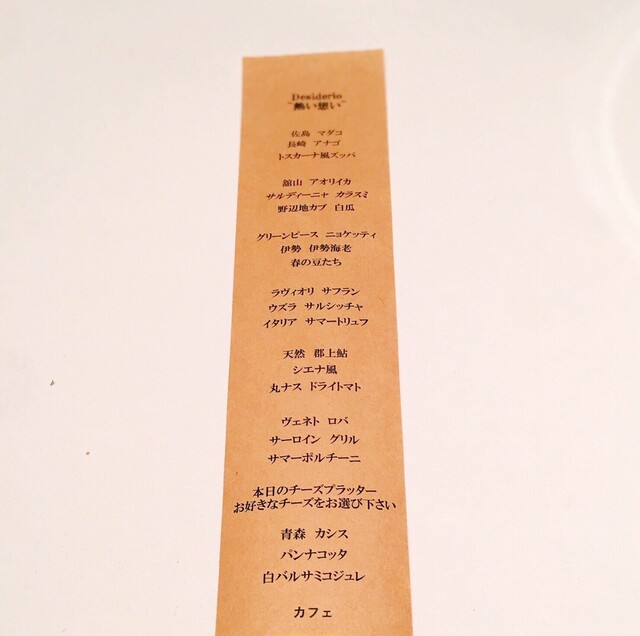 Desiderio
"熱い想い"
佐島 マダコ
長崎 アナゴ
トスカーナ風ズッパ
舘山 アオリイカ
サルディーニャ カラスミ
野辺地カブ 白瓜
グリーンピース ニョケッティ
伊勢 伊勢海老
春の豆たち
ラヴィオリ サフラン
ウズラ サルシッチャ
イタリア サマートリュフ
天然 郡上鮎
シエナ風
丸ナス ドライトマト
ヴェネト ロバ
サーロイン グリル
サマーポルチーニ
本日のチーズプラッター
お好きなチーズをお選び下さい
青森 カシス
パンナコッタ
白バルサミコジュレ
カフェ